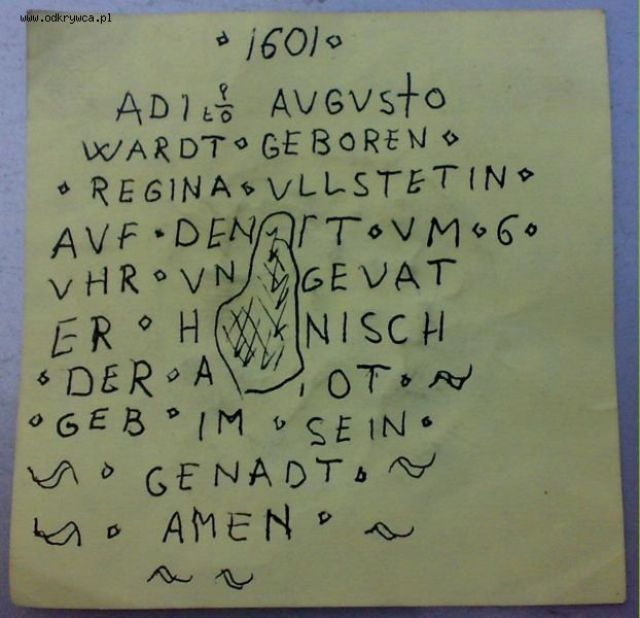 www.odkrywca.pl
1601
AUGUSTO
WARDT GEBOREN
REGINA VLLSTETIN
AVF DEN VM 6
VHR VN GEVAT
ER H NISCH
DER A OT
GEB IM SEIN
GENADT
AMEN